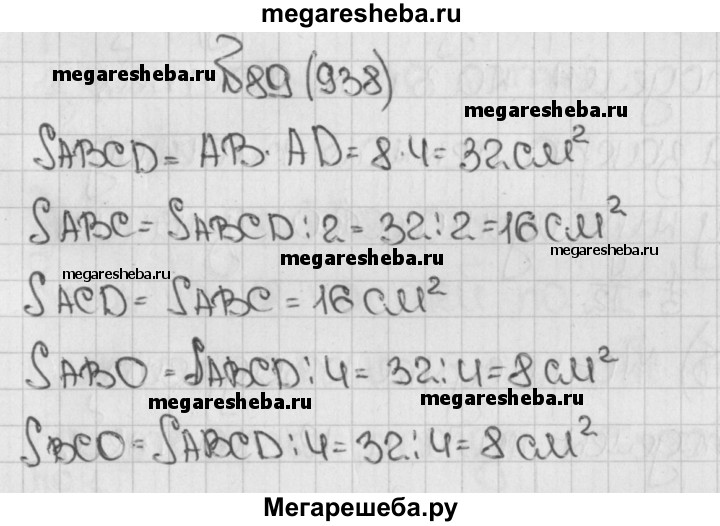 megaresheba.ru
№ 89 (938)
megaresheba.ru
megaresheba.ru
SABCD = AB · AD = 8 · 4 = 32 см²
SABC = SABCD : 2 = 32 : 2 = 16 см²
megaresheba.ru
megaresheba.ru
megaresheba.ru
SACD = SABC = 16 см²
SABO = SABCD : 4 = 32 : 4 = 8 см²
megaresheba.ru
megaresheba.ru
SBCO = SABCD : 4 = 32 : 4 = 8 см²
Мегарешеба.ру